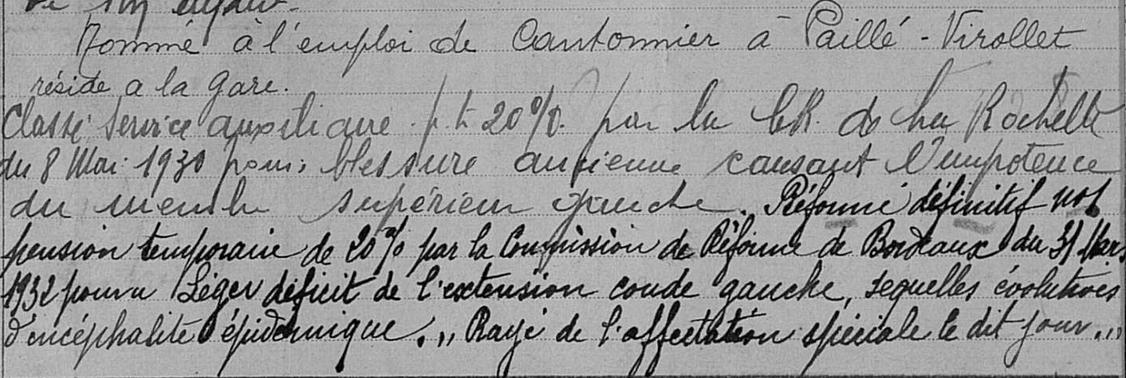 Nommé à l'emploi de Cantonnier à Paillé - Virollet
réside a la gare.
Classé service auxiliaire p. t. 20% par la CR. de La Rochelle
du 8 Mai 1930 pour blessure ancienne causant l'impotence
du membre supérieur gauche. Réformé définitif no1
pension temporaire de 20% par la Commission de Réforme de Bordeaux du 31 Mars
1932 pour " Léger déficit de l'extension coude gauche, sequelles évolutives
d'encéphalite épidémique. " Rayé de l'affectation spéciale le dit jour. "